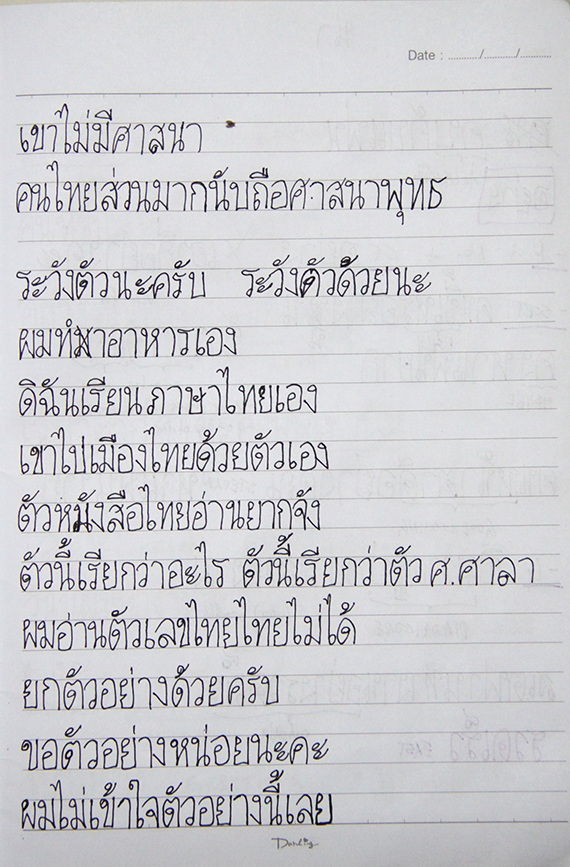 Date : ........../........../..........
เขาไม่มีศาสนา
คนไทยส่วนมากนับถือศาสนาพุทธ
ระวังตัวนะครับ ระวังตัวด้วยนะ
ผมทำอาหารเอง
ดิฉันเรียนภาษาไทยเอง
เขาไปเมืองไทยด้วยตัวเอง
ตัวหนังสือไทยอ่านยากจัง
ตัวนี้เรียกว่าอะไร ตัวนี้เรียกว่าตัว ศ.ศาลา
ผมอ่านตัวเลขไทยไทยไม่ได้
ยกตัวอย่างด้วยครับ
ขอตัวอย่างหน่อยนะคะ
ผมไม่เข้าใจตัวอย่างนี้เลย